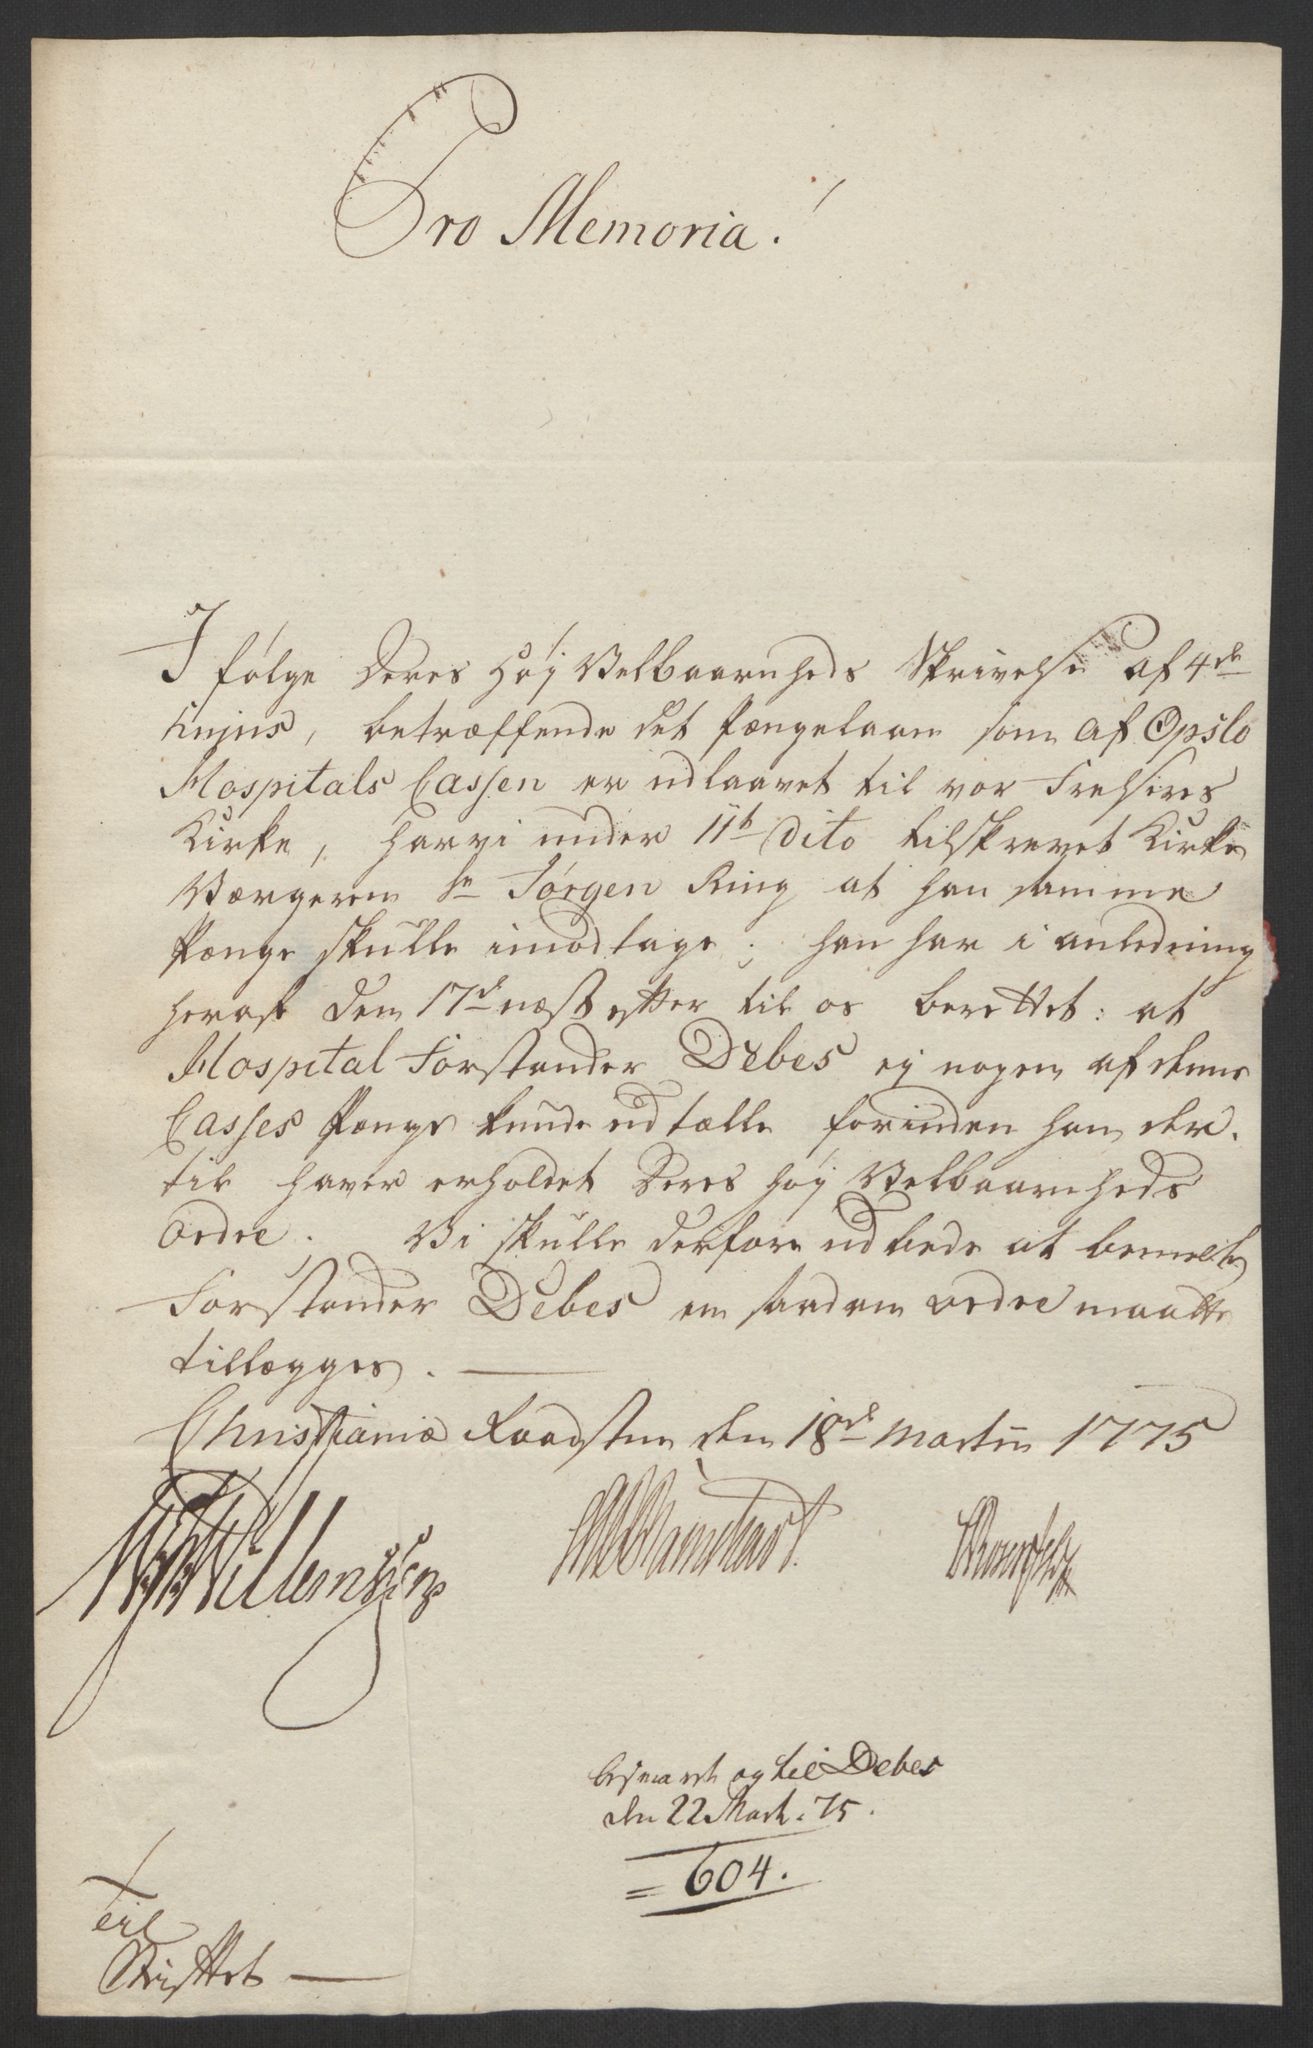 Pro Memoria!
I følge Deres Høj Velbaarnheds Skrivelse af 4de
hujus, betræffende det Pængelaan som af Opslo
Hospitals Cassen er udlaavet til vor Frelseres
Kirke, har vi under 11te dito tilskrevet Kirke
Værgeren Sr Jørgen Ring at han samme
Pænge skulle imodtage; han har i anledning
heraf den 17de næst efter til os berettet: at
Hospital Forstander Debes ej nogen af denne
Casses Pænge kunde udtælle forinden han der-
til haver erholdet Deres Høj Velbaarnheds
Ordre. Vi skulle derfore udbede at bemelte
Forstander Debes en saadan ordre maatte
tillægges.
Christiania Raadstue den 18de Martii 1775
Willemsen
og til Debes
den 22 Mart. 75.
604.
Til
Stiftet